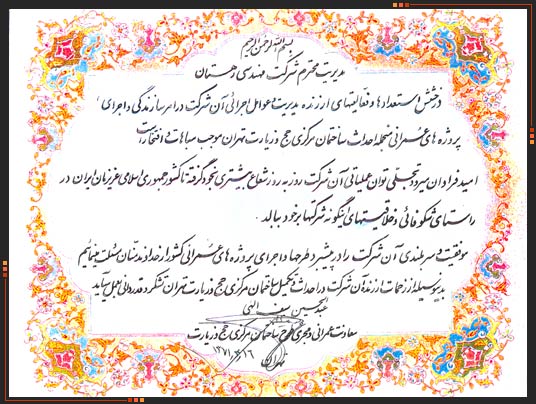 بسم الله الرحمن الرحیم
مدیریت محترم شرکت مهندسی رهستان
درخشش استعدادها و فعالیتهای ارزنده مدیریت و عوامل اجرائی آن شرکت در امر سازندگی و اجرای
پروژه های عمرانی منجمله احداث ساختمان مرکزی حج و زیارت تهران موجب مباهات و افتخار است
امید فراوان میرود تجلی توان عملیاتی آن شرکت روز به روز شعاع بیشتری بخود گرفته تا کشور جمهوری اسلامی عزیزمان ایران در
راستای شکوفائی و خلاقیتهای اینگونه شرکتها بر خود ببالد .
موفقیت و سربلندی آن شرکت را در پیشبرد طرحها و اجرای پروژه های عمرانی کشور از خداوند منان مسئلت مینمائیم
بدینوسیله از زحمات ارزنده آن شرکت در احداث و تکمیل ساختمان مرکزی حج و زیارت تهران تشکر و قدردانی بعمل میآید
عبدالحسین سیف الهی
معاونت عمرانی و مجری طرح ساختمان مرکزی حج و زیارت